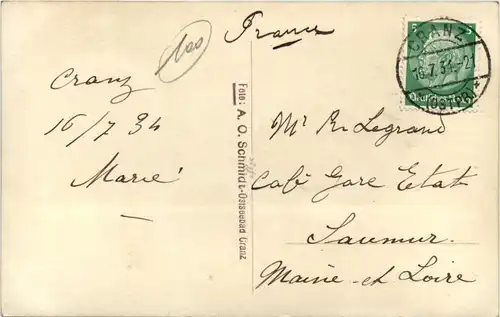 100
France
Cranz
16/7 34
Marie
Foto: A. O. Schmidt-Ostseebad Cranz
5 5
Deutsches Reich
CRANZ
16.7.34.-21
(OSTPR)
Mr Legrand
Café Gare Etat
Saumur
Maine et Loire